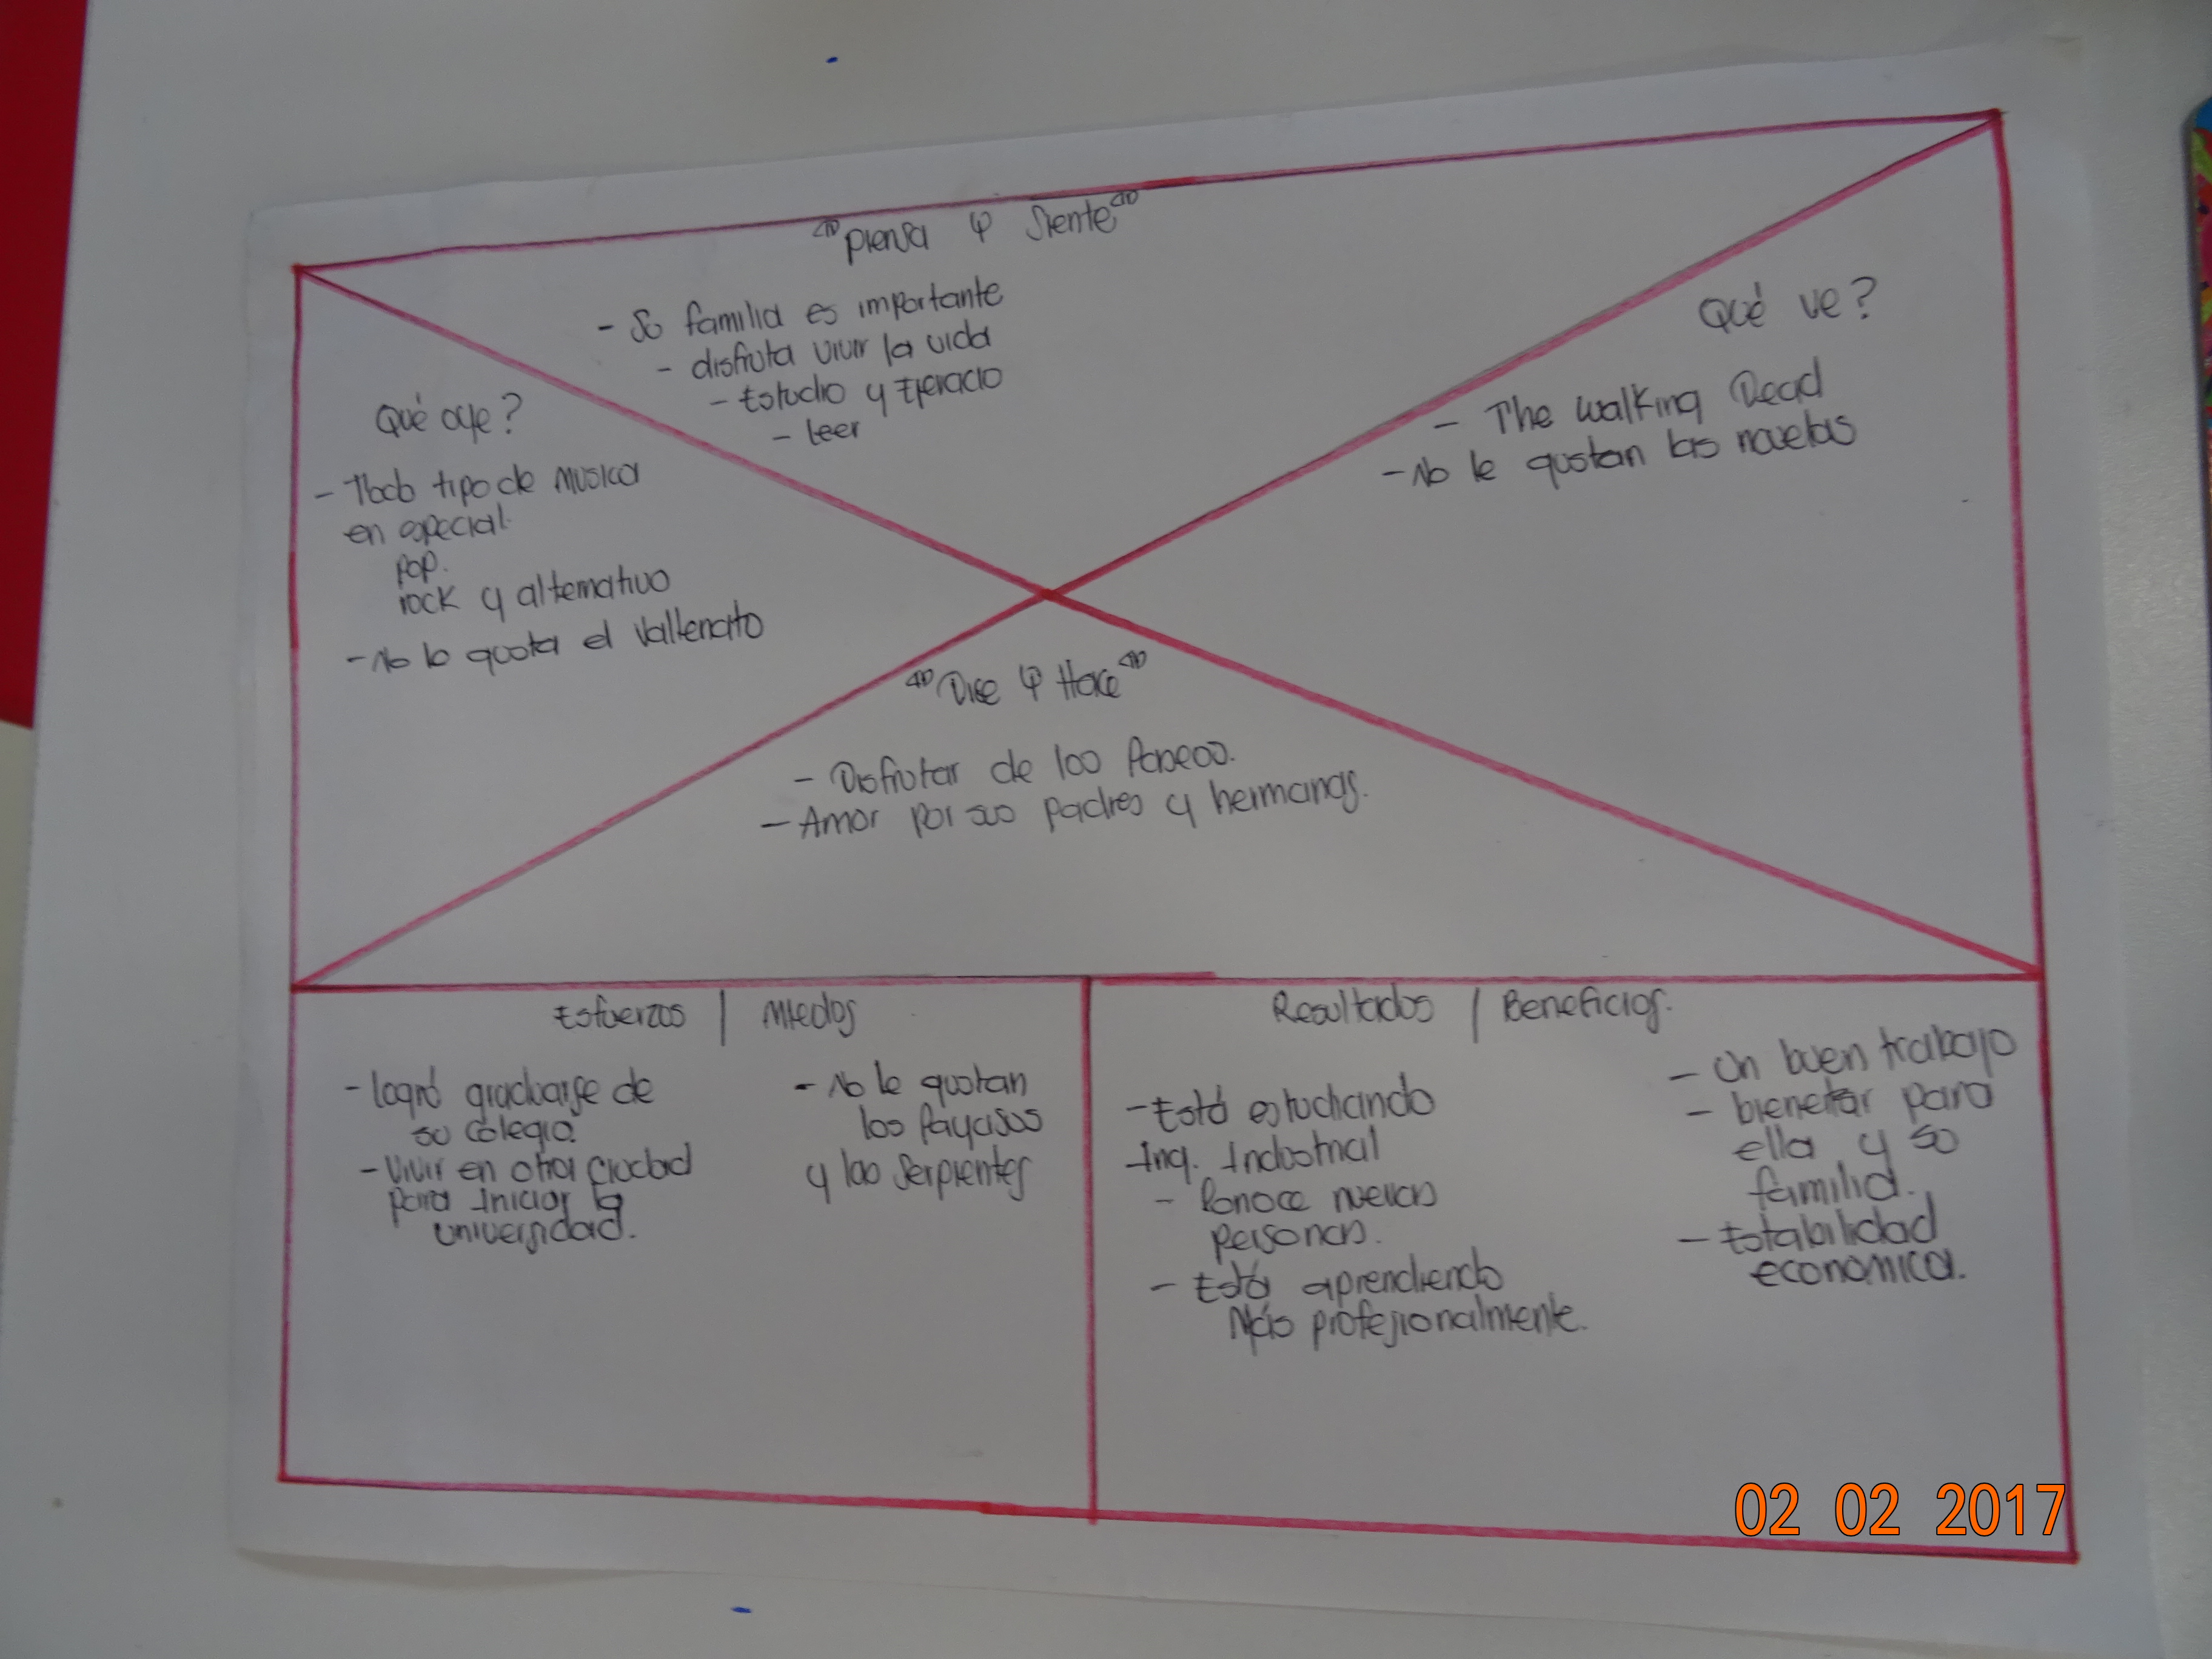 "Piensa y Siente"
- Su familia es importante
- disfruta vivir la vida
- Estudio y Ejercicio
- leer
Qué oye?
- Todo tipo de musica
en especial.
pop.
rock y alternativo
- No le gusta el Vallenato
Qué ve?
- The Walking Dead
- No le gustan las novelas
"Dice y Hace"
- Disfrutar de los Paseos.
- Amor por sus padres y hermanas.
Esfuerzos | Miedos
- logró graduarse de
su colegio.
- Vivir en otra Ciudad
para Iniciar la
universidad.
- No le gustan
los Payasos
y las Serpientes
Resultados | Beneficios.
- Está estudiando
Ing. Industrial
- Conoce nuevas
personas.
- Está aprendiendo
Más profesionalmente.
- Un buen trabajo
- bienestar para
ella y su
familia.
- Estabilidad
economica.
02 02 2017